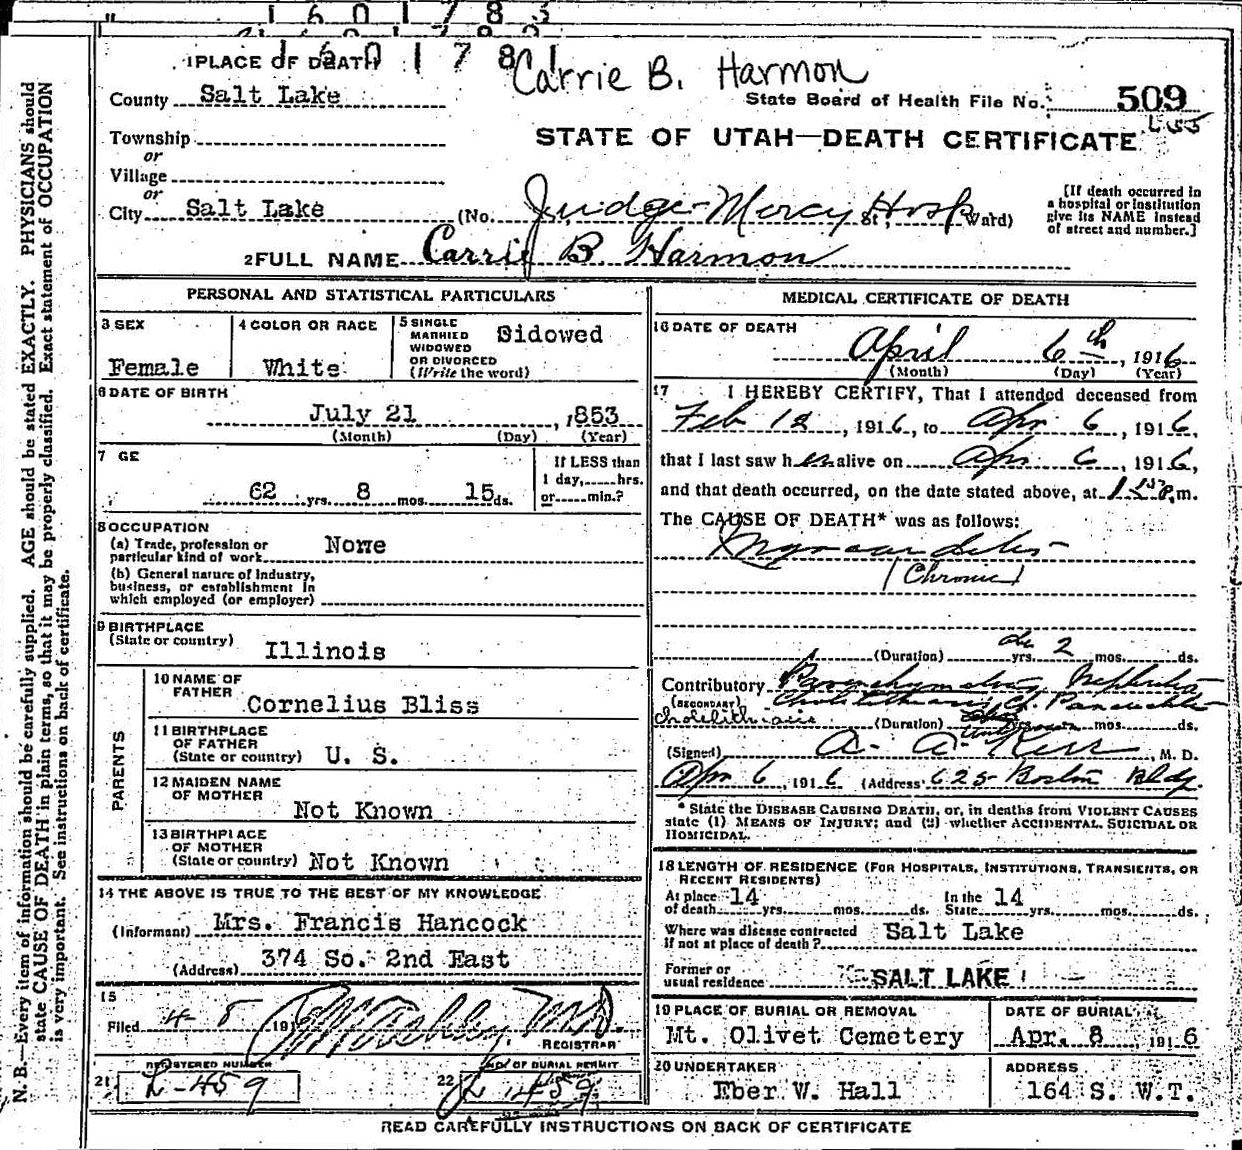 1 6 0 1 7 8 3
1 PLACE OF DEATH
1 6 0 1 7 8 1
Carrie B. Harmon
County Salt Lake
State Board of Health File No. 509
Township
or
Village
or
City Salt Lake
STATE OF UTAH—DEATH CERTIFICATE
(No. Judge Mercy Hosp St., Ward)
[If death occurred in
a hospital or institution
give its NAME instead
of street and number.]
2 FULL NAME Carrie B Harmon
PERSONAL AND STATISTICAL PARTICULARS
3 SEX
Female
4 COLOR OR RACE
White
5 SINGLE
MARRIED
WIDOWED
OR DIVORCED
(Write the word)
Sidowed
6 DATE OF BIRTH
July 21, 1853
(Month) (Day) (Year)
7 GE
62 yrs. 8 mos. 15 ds.
If LESS than
1 day, hrs.
or min.?
8 OCCUPATION
(a) Trade, profession or
particular kind of work None
(b) General nature of Industry,
business, or establishment in
which employed (or employer)
9 BIRTHPLACE
(State or country) Illinois
PARENTS
10 NAME OF
FATHER
Cornelius Bliss
11 BIRTHPLACE
OF FATHER
(State or country) U. S.
12 MAIDEN NAME
OF MOTHER
Not Known
13 BIRTHPLACE
OF MOTHER
(State or country) Not Known
14 THE ABOVE IS TRUE TO THE BEST OF MY KNOWLEDGE
(Informant) Mrs. Francis Hancock
(Address) 374 So. 2nd East
15
Filed 4 8 191
M.D.
REGISTRAR
REGISTERED NUMBER
21 L-459
NO. OF BURIAL PERMIT
22 L 459
MEDICAL CERTIFICATE OF DEATH
16 DATE OF DEATH
April 6th, 1916
(Month) (Day) (Year)
17 I HEREBY CERTIFY, That I attended deceased from
Feb 12, 1916, to Apr 6, 1916,
that I last saw her alive on Apr 6, 1916,
and that death occurred, on the date stated above, at m.
The CAUSE OF DEATH* was as follows:
Myocarditis
(Chronic)
(Duration) yrs. 2 mos. ds.
Contributory Parenchymatous Nephritis
(SECONDARY) Cholelithiasis Ch. Pancreatitis
Cholelithiasis (Duration) yrs. mos. ds.
(Signed) A. A. Kerr, M. D.
Apr 6, 1916 (Address) 625 Boston Bldg.
* State the DISEASE CAUSING DEATH, or, in deaths from VIOLENT CAUSES
state (1) MEANS OF INJURY; and (2) whether ACCIDENTAL, SUICIDAL OR
HOMICIDAL.
18 LENGTH OF RESIDENCE (FOR HOSPITALS, INSTITUTIONS, TRANSIENTS, OR
RECENT RESIDENTS)
At place 14 In the 14
of death yrs. mos. ds. State yrs. mos. ds.
Where was disease contracted
if not at place of death? Salt Lake
Former or
usual residence SALT LAKE
19 PLACE OF BURIAL OR REMOVAL
Mt. Olivet Cemetery
DATE OF BURIAL
Apr. 8, 1916
20 UNDERTAKER
Eber W. Hall
ADDRESS
164 S. W.T.
READ CAREFULLY INSTRUCTIONS ON BACK OF CERTIFICATE
N. B.—Every item of information should be carefully supplied. AGE should be stated EXACTLY. PHYSICIANS should
state CAUSE OF DEATH in plain terms, so that it may be properly classified. Exact statement of OCCUPATION
is very important. See instructions on back of certificate.